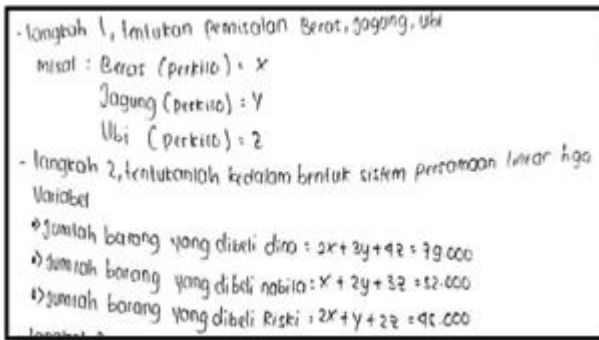 - langkah 1, tentukan pemisalan Beras, Jagung, ubi
misal : Beras (perkilo) : x
Jagung (perkilo) : y
Ubi (perkilo) : z
- langkah 2, tentukanlah kedalam bentuk sistem persamaan linear tiga
Variabel
jumlah barang yang dibeli dina : 2x + 3y + 4z = 79.000
jumlah barang yang dibeli nabila : x + 2y + 3z = 52.000
jumlah barang yang dibeli Riski : 2x + y + 2z =